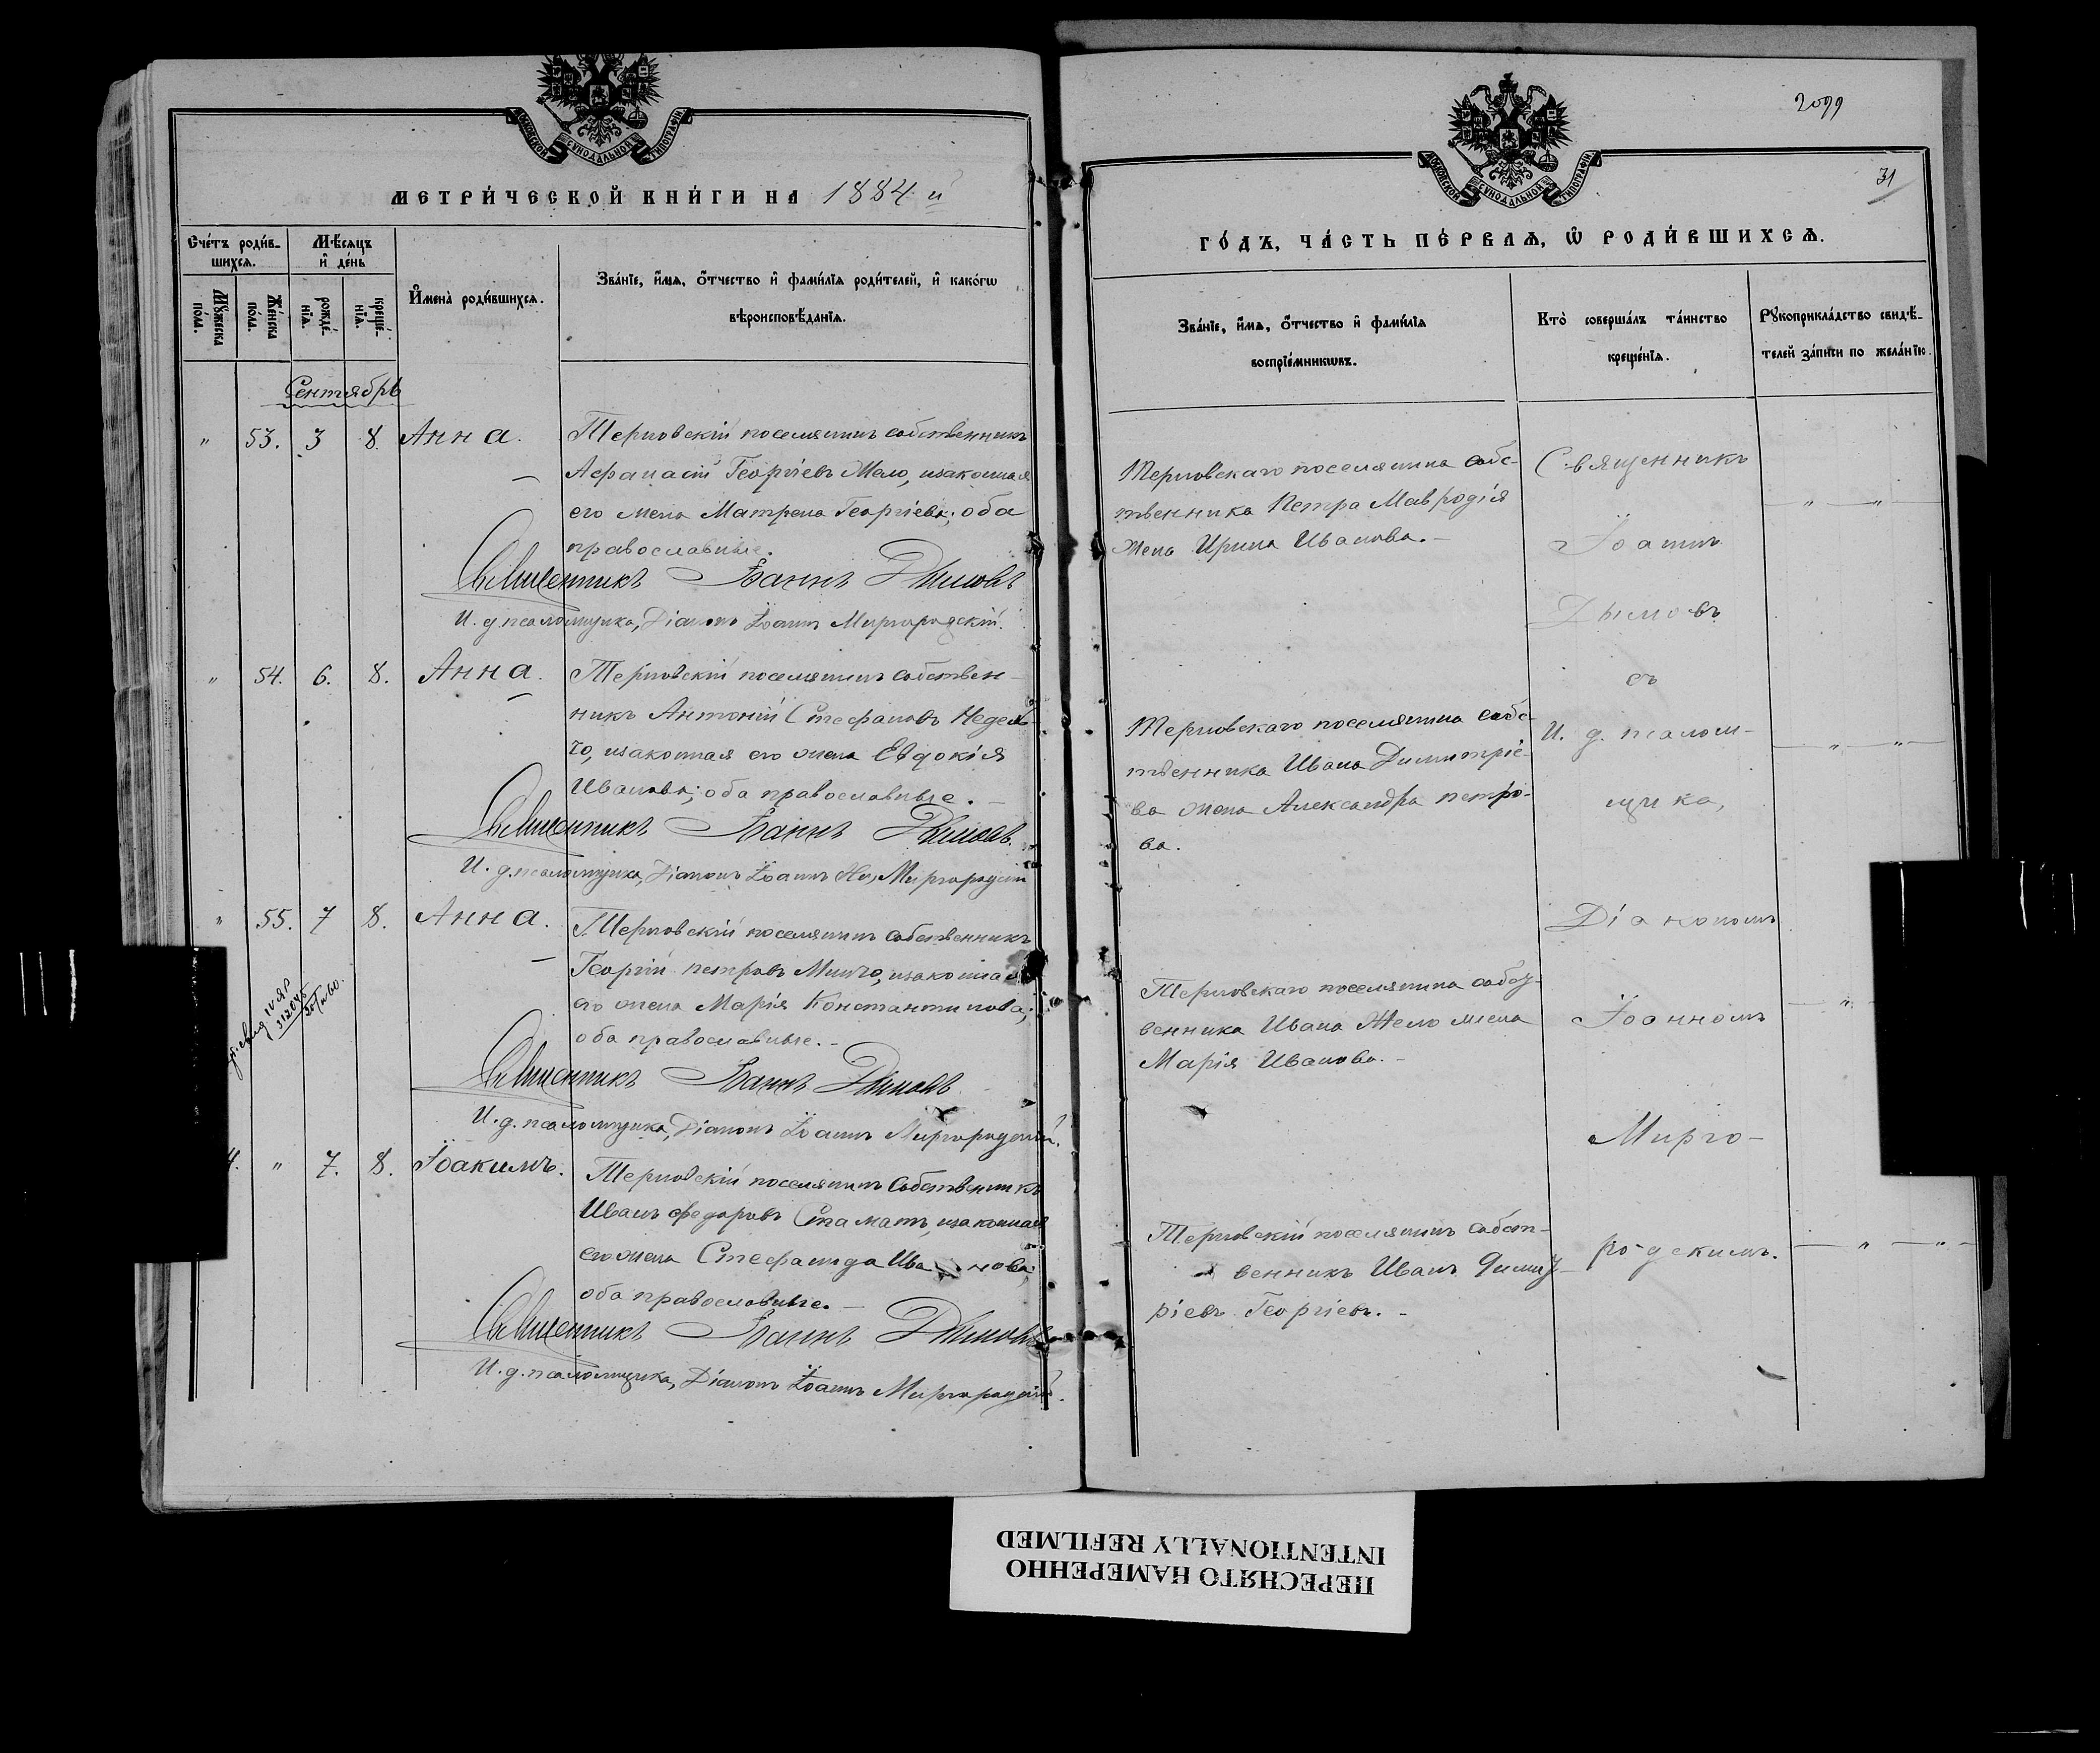 МОСКОВСКОЙ СѴНОДАЛЬНОЙ ТИПОГРАФІИ
МЕТРИ́ЧЕСКОЙ КНИ́ГИ НА 1884 й
Сче́тъ роди́в-
шихся.
Мѣ́сяцъ
и҆ де́нь
Мꙋ́жеска
по́ла.
Же́нска
по́ла.
рожде́-
нїѧ.
креще́-
нїѧ.
И҆мена̀ роди́вшихсѧ.
Зва́нїе, и҆́мѧ, ѻ҆́тчество и҆ фами́лїѧ роди́телей, и҆ како́гѡ
вѣроисповѣ́данїѧ.
Сентябрь
" 53. 3 8. Анна.
Терновскій поселянинъ собственникъ
Афанасій Георгіевъ Мело, изаконная
его жена Матрена Георгіева; оба
православные.
Священникъ Іоаннъ Дымовъ
И. д. псаломщика, Діаконъ Іоаннъ Миргородскій.
" 54. 6. 8. Анна.
Терновскій поселянинъ собствен-
никъ Антоній Стефановъ Недел-
ко, изаконная его жена Евдокія
Иванова; оба православные. —
Священникъ Іоаннъ Дымовъ.
И. д. псаломщика, Діаконъ Іоаннъ Миргородскій
" 55. 7 8. Анна.
Терновскій поселянинъ собственникъ
Георгій Петровъ Минчо, изаконная
его жена Марія Константинова;
оба православные. —
Священникъ Іоаннъ Дымовъ
И. д. псаломщика, Діаконъ Іоаннъ Миргородскій.
4. " 7. 8. Іоакимъ.
Терновскій поселянинъ собственникъ
Иванъ Федоровъ Стаматъ, изаконная
его жена Стефанида Иванова;
оба православные. —
Священникъ Іоаннъ Дымовъ
И. д. псаломщика, Діаконъ Іоаннъ Миргородскій.
312045
2099
31
МОСКОВСКОЙ СѴНОДАЛЬНОЙ ТИПОГРАФІИ
ГО́ДЪ, ЧА́СТЬ ПЕ́РВАѦ, Ѡ҆ РОДИ́ВШИХСѦ.
Зва́нїе, и҆́мѧ, ѻ҆́тчество и҆ фами́лїѧ
воспрїе́мникѡвъ.
Кто̀ соверша́лъ та́инство
креще́нїѧ.
Рꙋкоприкла́дство свидѣ́-
телей за́писи по жела́нїю.
Терновскаго поселянина собс-
твенника Петра Мавродія
жена Ирина Иванова. —
Терновскаго поселянина собс-
твенника Ивана Димитріе-
ва жена Александра Петро-
ва.
Терновскаго поселянина собст-
венника Ивана Жело жена
Марія Иванова. —
Терновскій поселянинъ собст-
венникъ Иванъ Димит-
ріевъ Георгіевъ. —
Священникъ
Іоаннъ
Дымовъ
съ
И. д. псалом-
щика,
Діакономъ
Іоанномъ
Мирго-
родскимъ.
— " — " —
— " — " —
— " —
— " — " —
ПЕРЕСНЯТО НАМЕРЕННО
INTENTIONALLY REFILMED